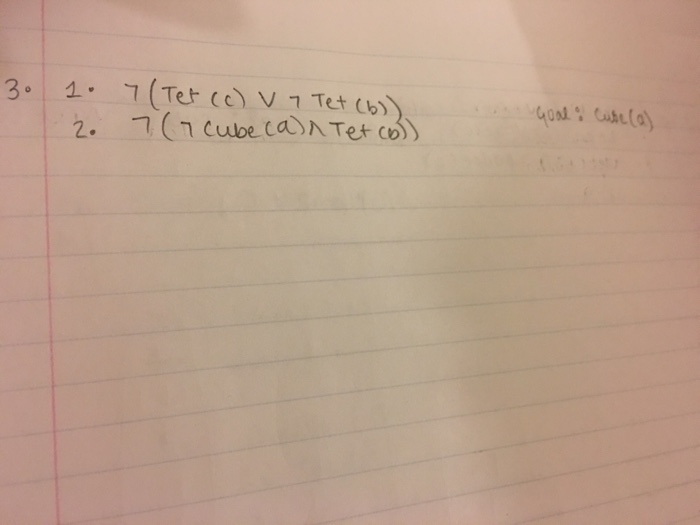 3. 1. ¬(Tet(c) ∨ ¬Tet(b))
2. ¬(¬Cube(a) ∧ Tet(b)) Goal: Cube(a)